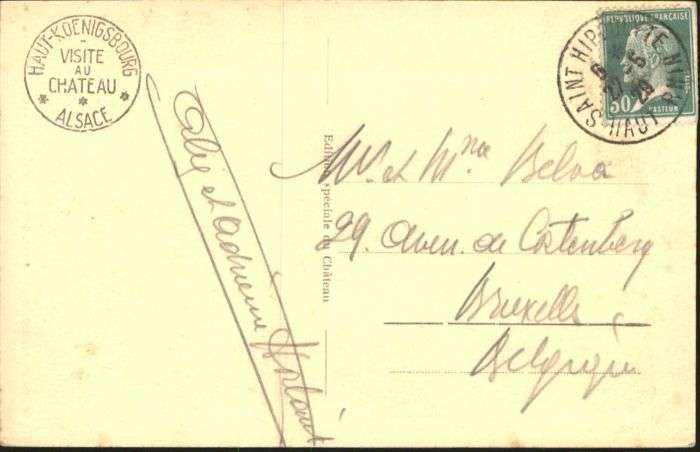 HAUT-KOENIGSBOURG
VISITE
AU
CHATEAU
ALSACE
REPUBLIQUE FRANÇAISE
30
PASTEUR
SAINT HIP
HAUT
et Adrienne
Edition spéciale du Château
Mr et Mme Belva
29. Aven. de Cortenberg
Bruxelles
Belgique